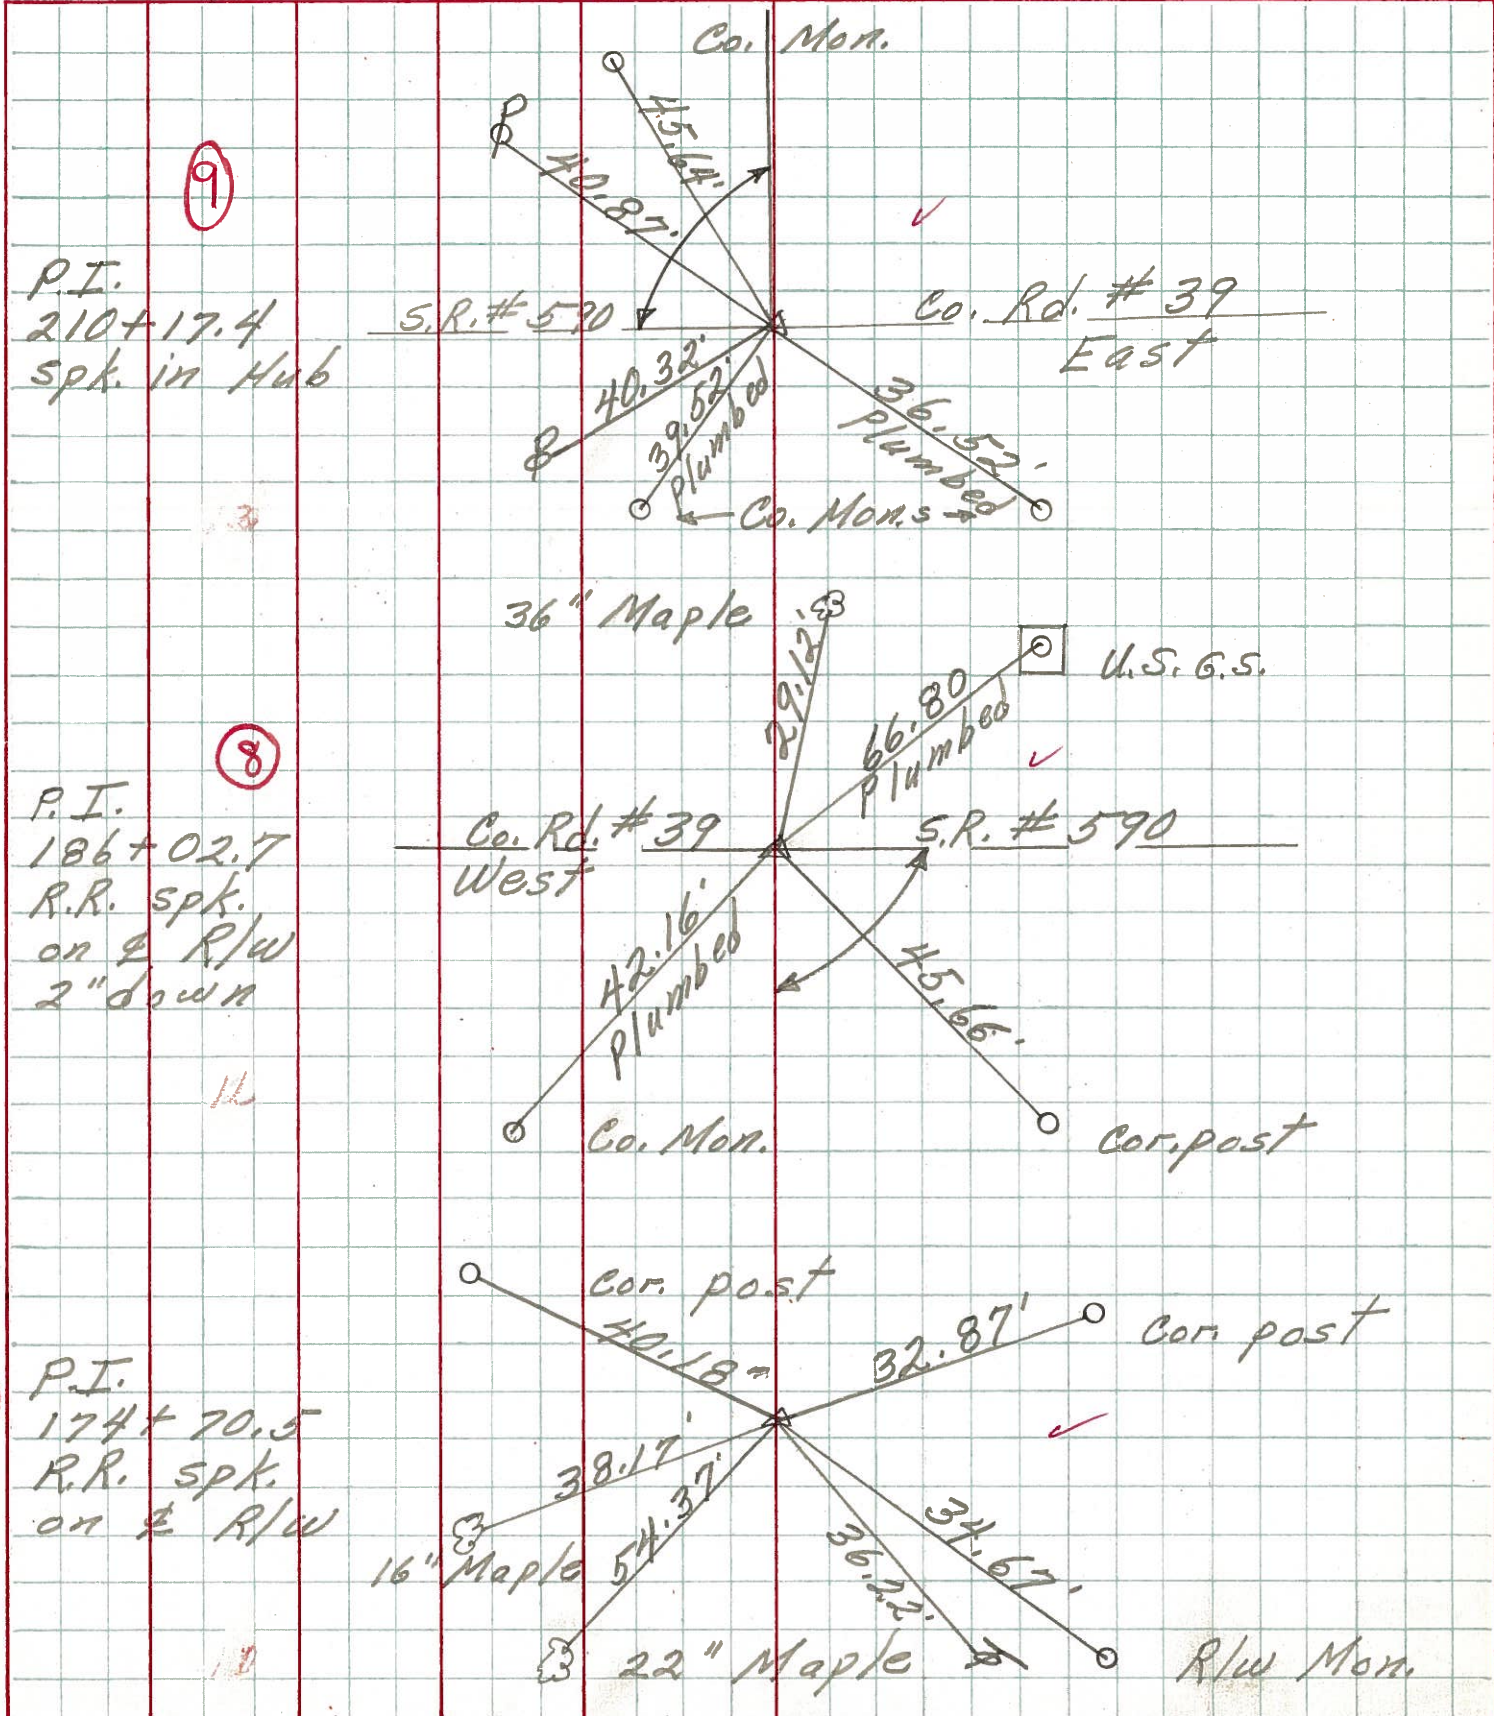 Co. Mon.
45.64'
40.87'
9
P.I.
210+17.4
spk. in Hub
S.R. # 590
Co. Rd. # 39
East
40.32'
39.52'
plumbed
36.52'
plumbed
Co. Mon.s
36" Maple
29.12'
66.80
plumbed
U.S.G.S.
8
P.I.
186+02.7
R.R. spk.
on ⅊ R/W
2" down
Co. Rd. # 39
West
S.R. # 590
42.16'
plumbed
45.66'
11
Co. Mon.
Cor. post
Cor. post
40.18
32.87'
Cor. post
P.I.
174+70.5
R.R. spk.
on R/W
38.17'
54.37'
36.22'
34.67'
16" Maple
22" Maple
R/W Mon.